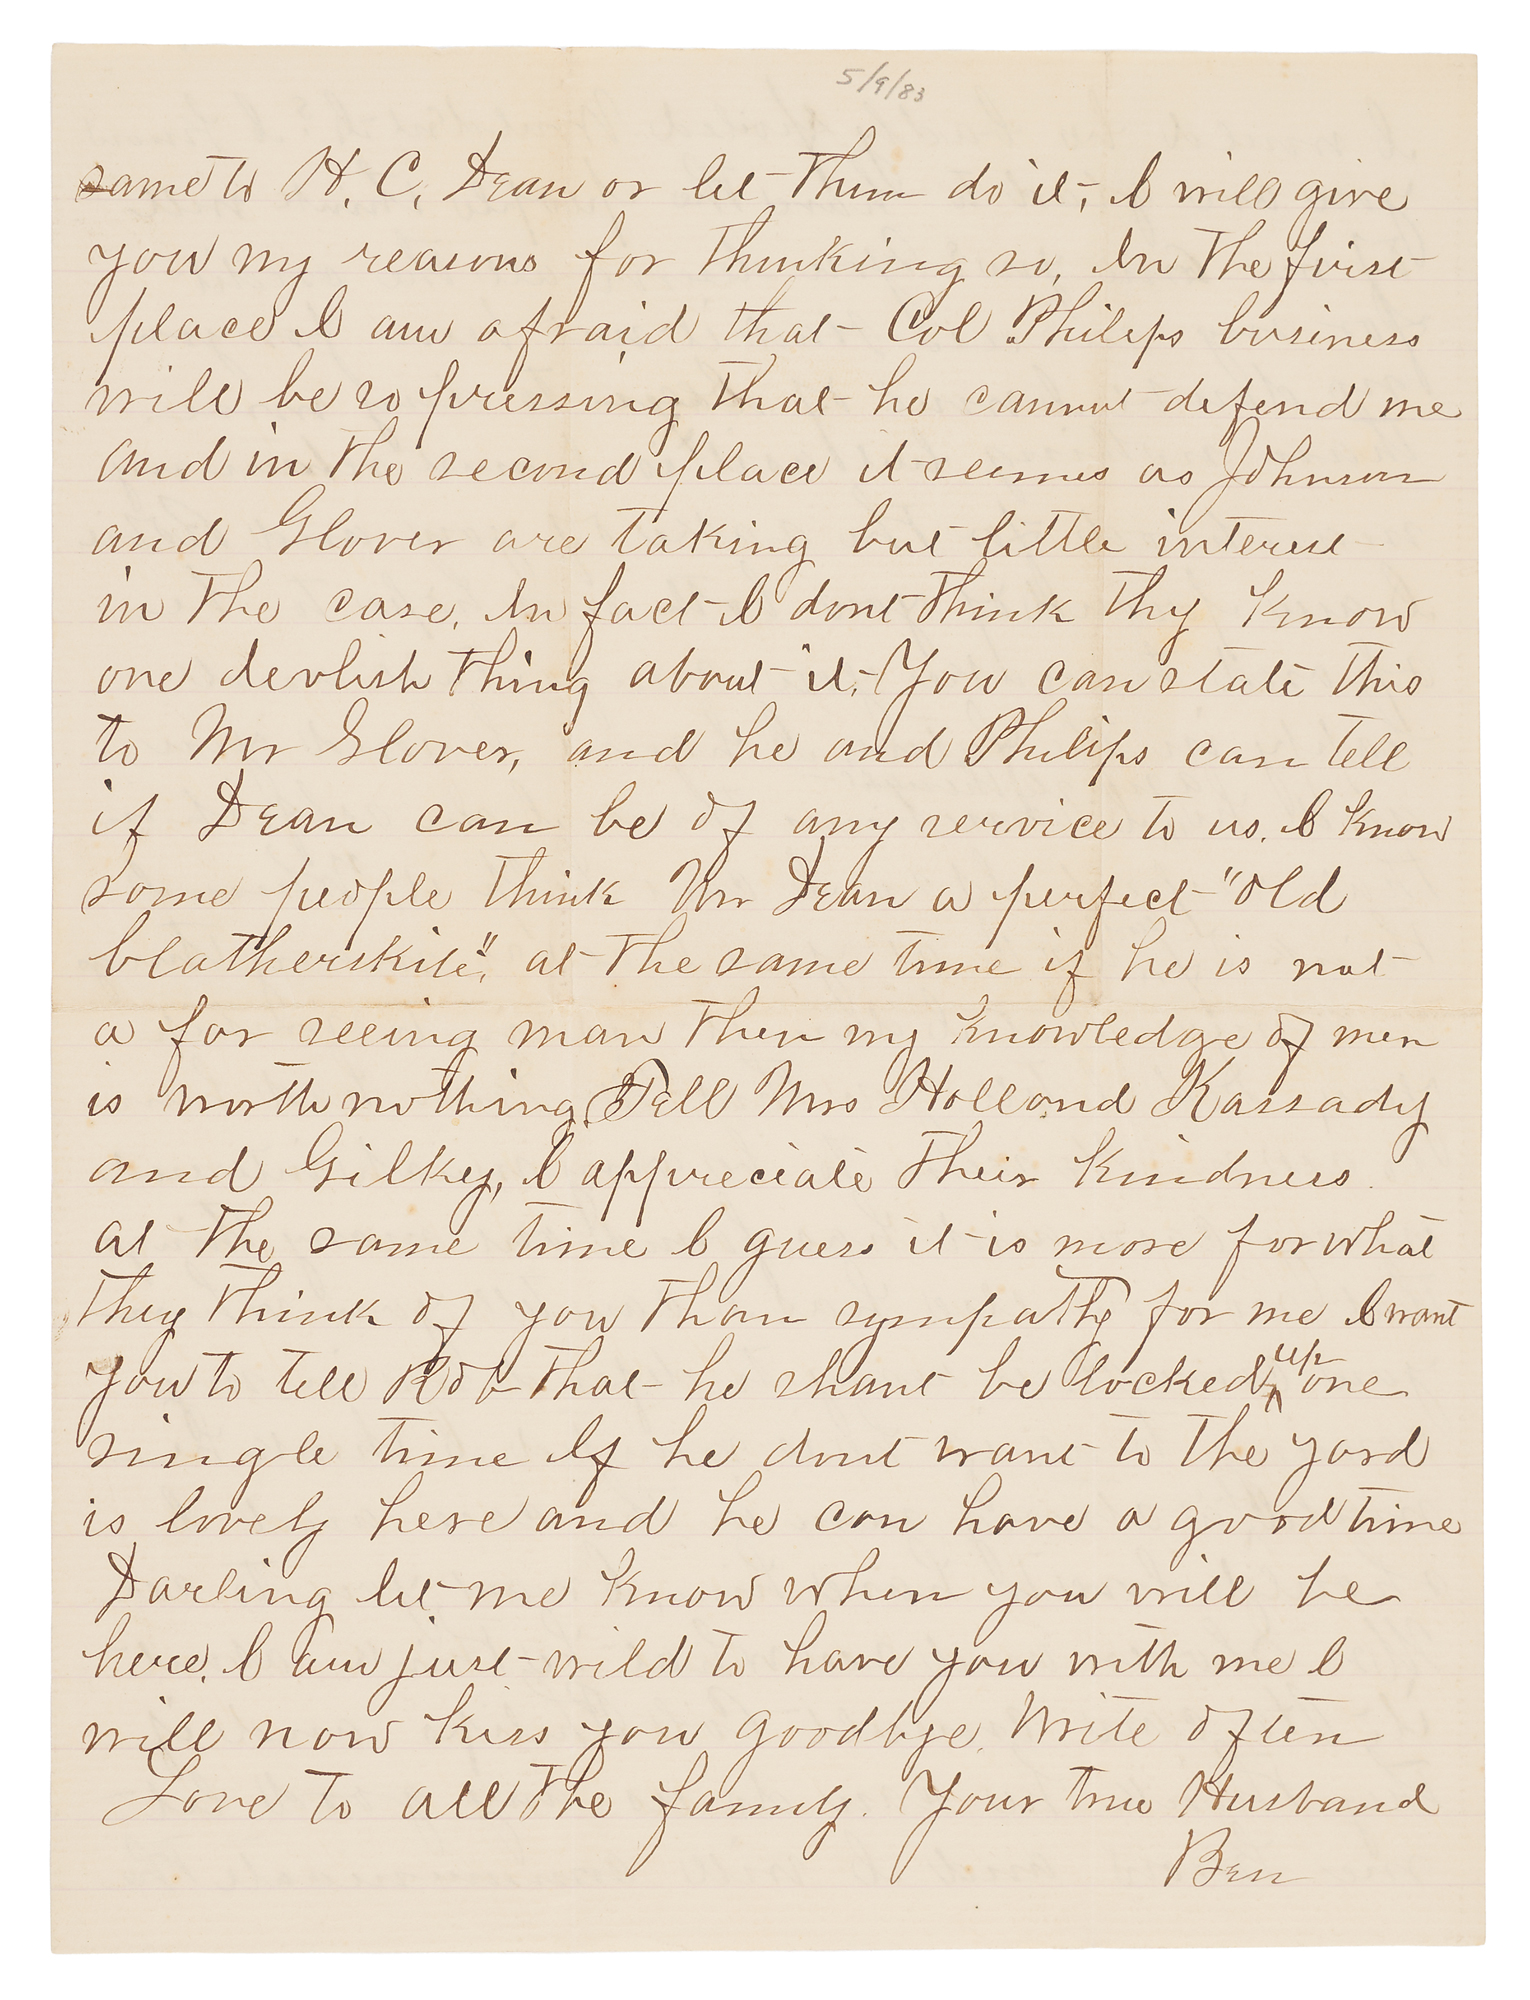 5/9/83
same to H. C. Dean or let them do it, I will give
you my reasons for thinking so, In the first
place I am afraid that Col Philips business
will be so pressing that he cannot defend me
and in the second place it seems as Johnson
and Glover are taking but little interest
in the case. In fact I dont think thy know
one devlish thing about it. You can state this
to Mr Glover, and he and Philips can tell
if Dean can be of any service to us. I know
some people think Mr Dean a perfect "old
blatherskite", at the same time if he is not
a far seeing man then my knowledge of men
is worth nothing. Tell Mrs Holland Kassady
and Gilkey, I appreciate their kindness.
at the same time I guess it is more for what
they think of you than sympathy for me I want
you to tell Rob that he shant be locked up one
single time If he dont want to the yard
is lovely here and he can have a good time
Darling let me know when you will be
here. I am just wild to have you with me I
will now kiss you goodbye. Write often
Love to all the family. Your true Husband
Ben